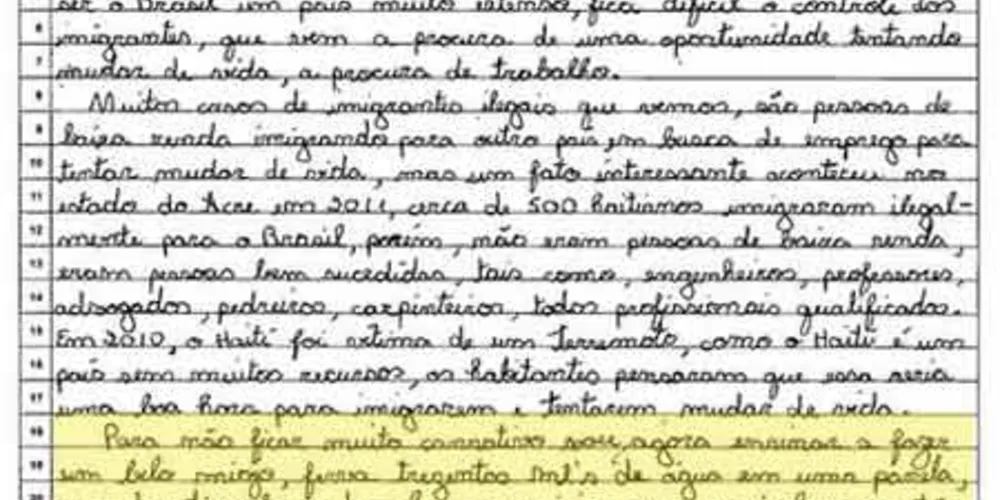 ser o Brasil um país muito extenso, fica difícil o controle dos
6 imigrantes, que vem a procura de uma oportunidade tentando
7 mudar de vida, a procura de trabalho.
8 Muitos casos de imigrantes ilegais que vemos, são pessoas de
9 baixa renda imigrando para outro país em busca de emprego para
10 tentar mudar de vida, mas um fato interessante aconteceu no
11 estado do Acre em 2011, cerca de 500 haitianos imigraram ilegal-
12 mente para o Brasil, porém, não eram pessoas de baixa renda,
13 eram pessoas bem sucedidas, tais como, engenheiros, professores,
14 advogados, pedreiros, carpinteiros, todos profissionais qualificados.
15 Em 2010, o Haiti foi vítima de um Terremoto, como o Haiti é um
16 país sem muitos recursos, os habitantes pensaram que essa seria
17 uma boa hora para imigrarem e tentarem mudar de vida.
18 Para não ficar muito cansativo vou, agora ensinar a fazer
19 um belo miojo, ferva trezentos ml's de água em uma panela,
20